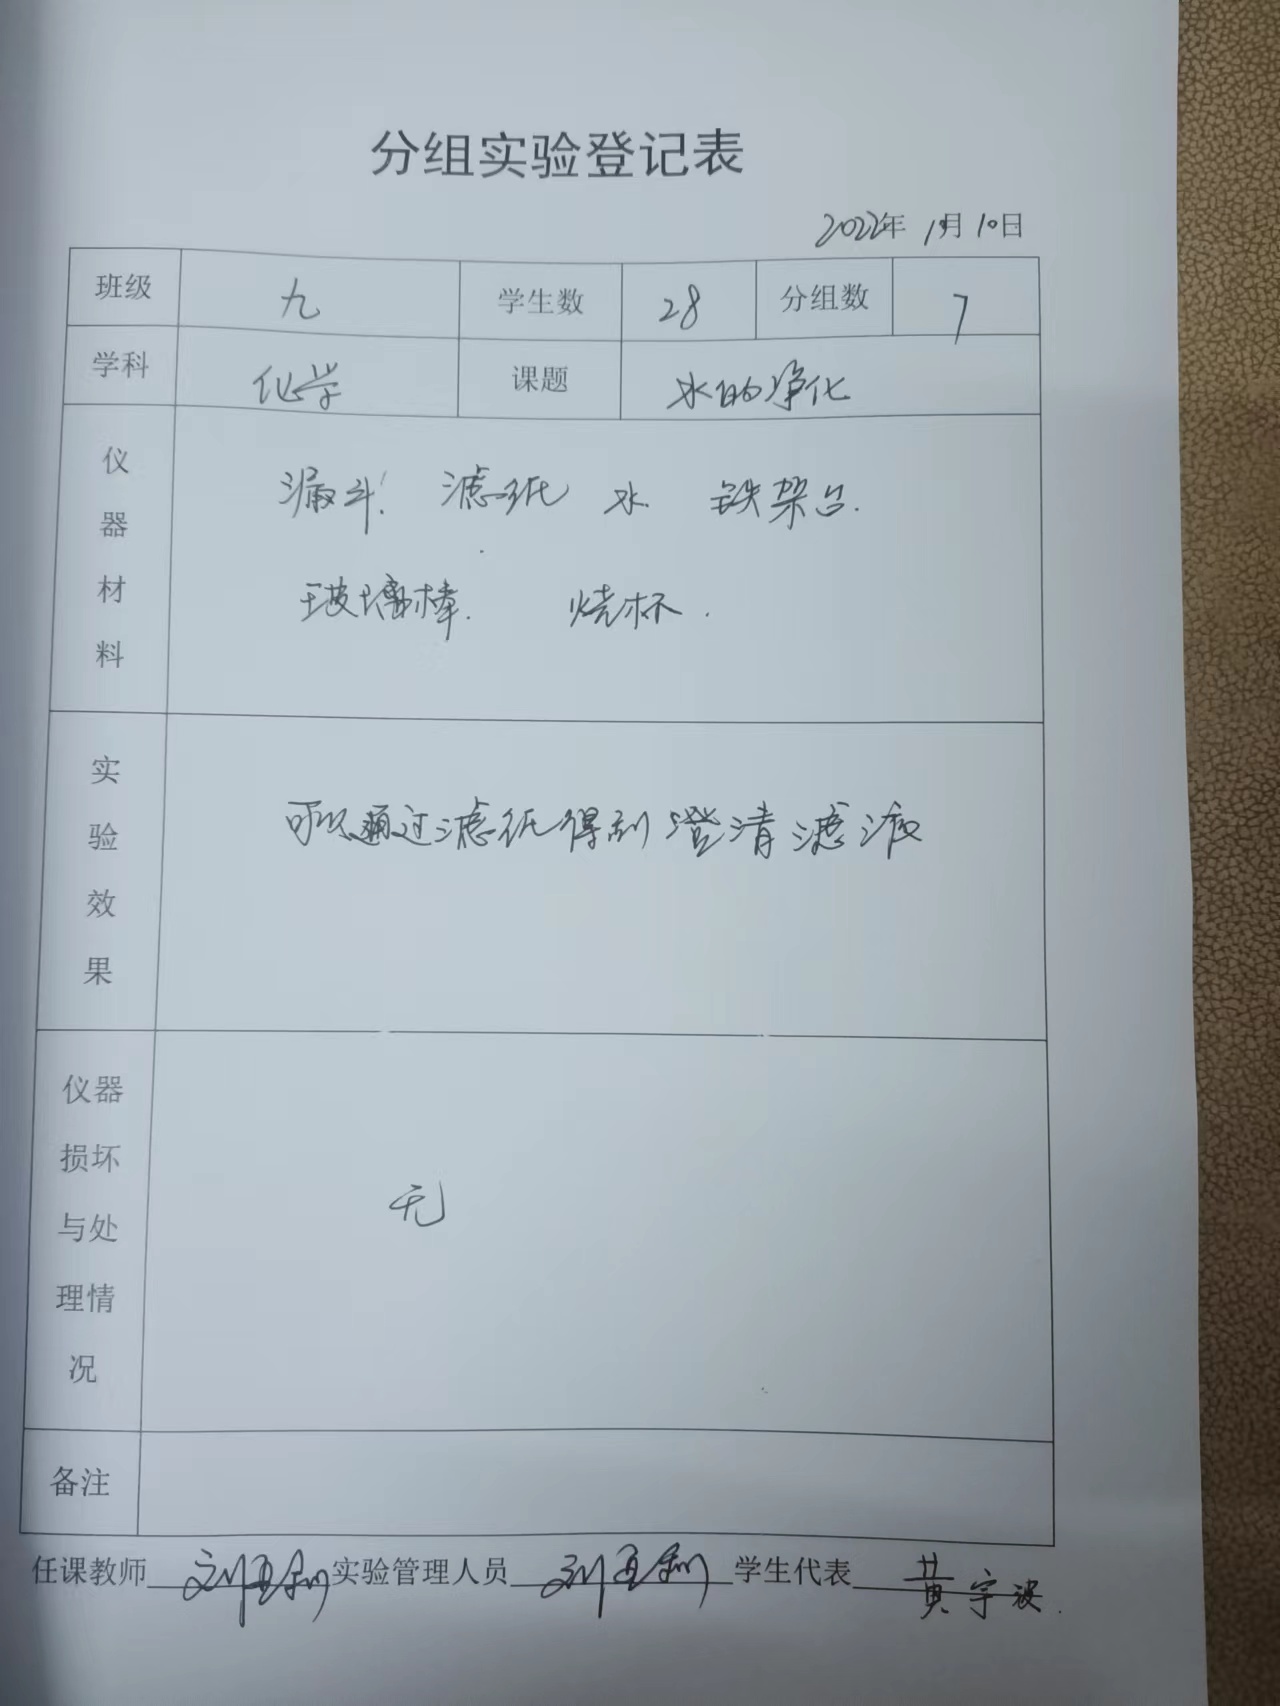 分组实验登记表
2022年 1月 10日
班级 九 学生数 28 分组数 7
学科 化学 课题 水的净化
仪器材料 漏斗. 滤纸 水. 铁架台.
玻璃棒. 烧杯.
实验效果 可以通过滤纸得到澄清滤液
仪器损坏与处理情况 无
备注
任课教师 刘 实验管理人员 刘 学生代表 黄宇波.